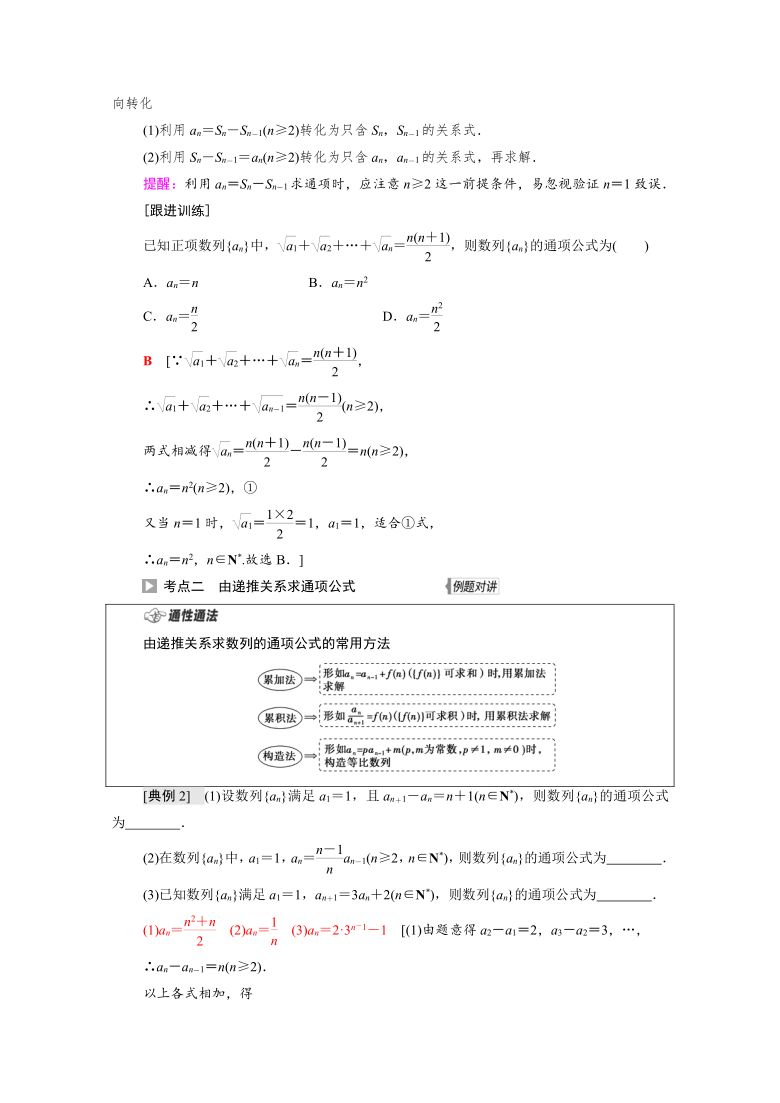 向转化
(1)利用 aₙ＝Sₙ－Sₙ₋₁(n≥2)转化为只含 Sₙ，Sₙ₋₁的关系式．
(2)利用 Sₙ－Sₙ₋₁＝aₙ(n≥2)转化为只含 aₙ，aₙ₋₁的关系式，再求解．
提醒：利用 aₙ＝Sₙ－Sₙ₋₁求通项时，应注意 n≥2 这一前提条件，易忽视验证 n＝1 致误．
[跟进训练]
已知正项数列{aₙ}中，√a₁＋√a₂＋…＋√aₙ＝n(n＋1)/2，则数列{aₙ}的通项公式为(　　)
A．aₙ＝n　　B．aₙ＝n²
C．aₙ＝n/2　　D．aₙ＝n²/2
B　[∵√a₁＋√a₂＋…＋√aₙ＝n(n＋1)/2，
∴√a₁＋√a₂＋…＋√aₙ₋₁＝n(n－1)/2(n≥2)，
两式相减得√aₙ＝n(n＋1)/2－n(n－1)/2＝n(n≥2)，
∴aₙ＝n²(n≥2)，①
又当 n＝1 时，√a₁＝1×2/2＝1，a₁＝1，适合①式，
∴aₙ＝n²，n∈N*.故选 B．]
考点二　由递推关系求通项公式　例题对讲
通性通法
由递推关系求数列的通项公式的常用方法
累加法⇒形如aₙ=aₙ₋₁+f(n)({f(n)}可求和)时,用累加法
求解
累积法⇒形如aₙ/aₙ₊₁=f(n)({f(n)}可求积)时,用累积法求解
构造法⇒形如aₙ=paₙ₋₁+m(p,m为常数,p≠1,m≠0)时,
构造等比数列
[典例 2]　(1)设数列{aₙ}满足 a₁＝1，且 aₙ₊₁－aₙ＝n＋1(n∈N*)，则数列{aₙ}的通项公式
为________．
(2)在数列{aₙ}中，a₁＝1，aₙ＝(n－1)/n aₙ₋₁(n≥2，n∈N*)，则数列{aₙ}的通项公式为________．
(3)已知数列{aₙ}满足 a₁＝1，aₙ₊₁＝3aₙ＋2(n∈N*)，则数列{aₙ}的通项公式为________．
(1)aₙ＝(n²＋n)/2　(2)aₙ＝1/n　(3)aₙ＝2·3ⁿ⁻¹－1　[(1)由题意得 a₂－a₁＝2，a₃－a₂＝3，…，
∴aₙ－aₙ₋₁＝n(n≥2)．
以上各式相加，得